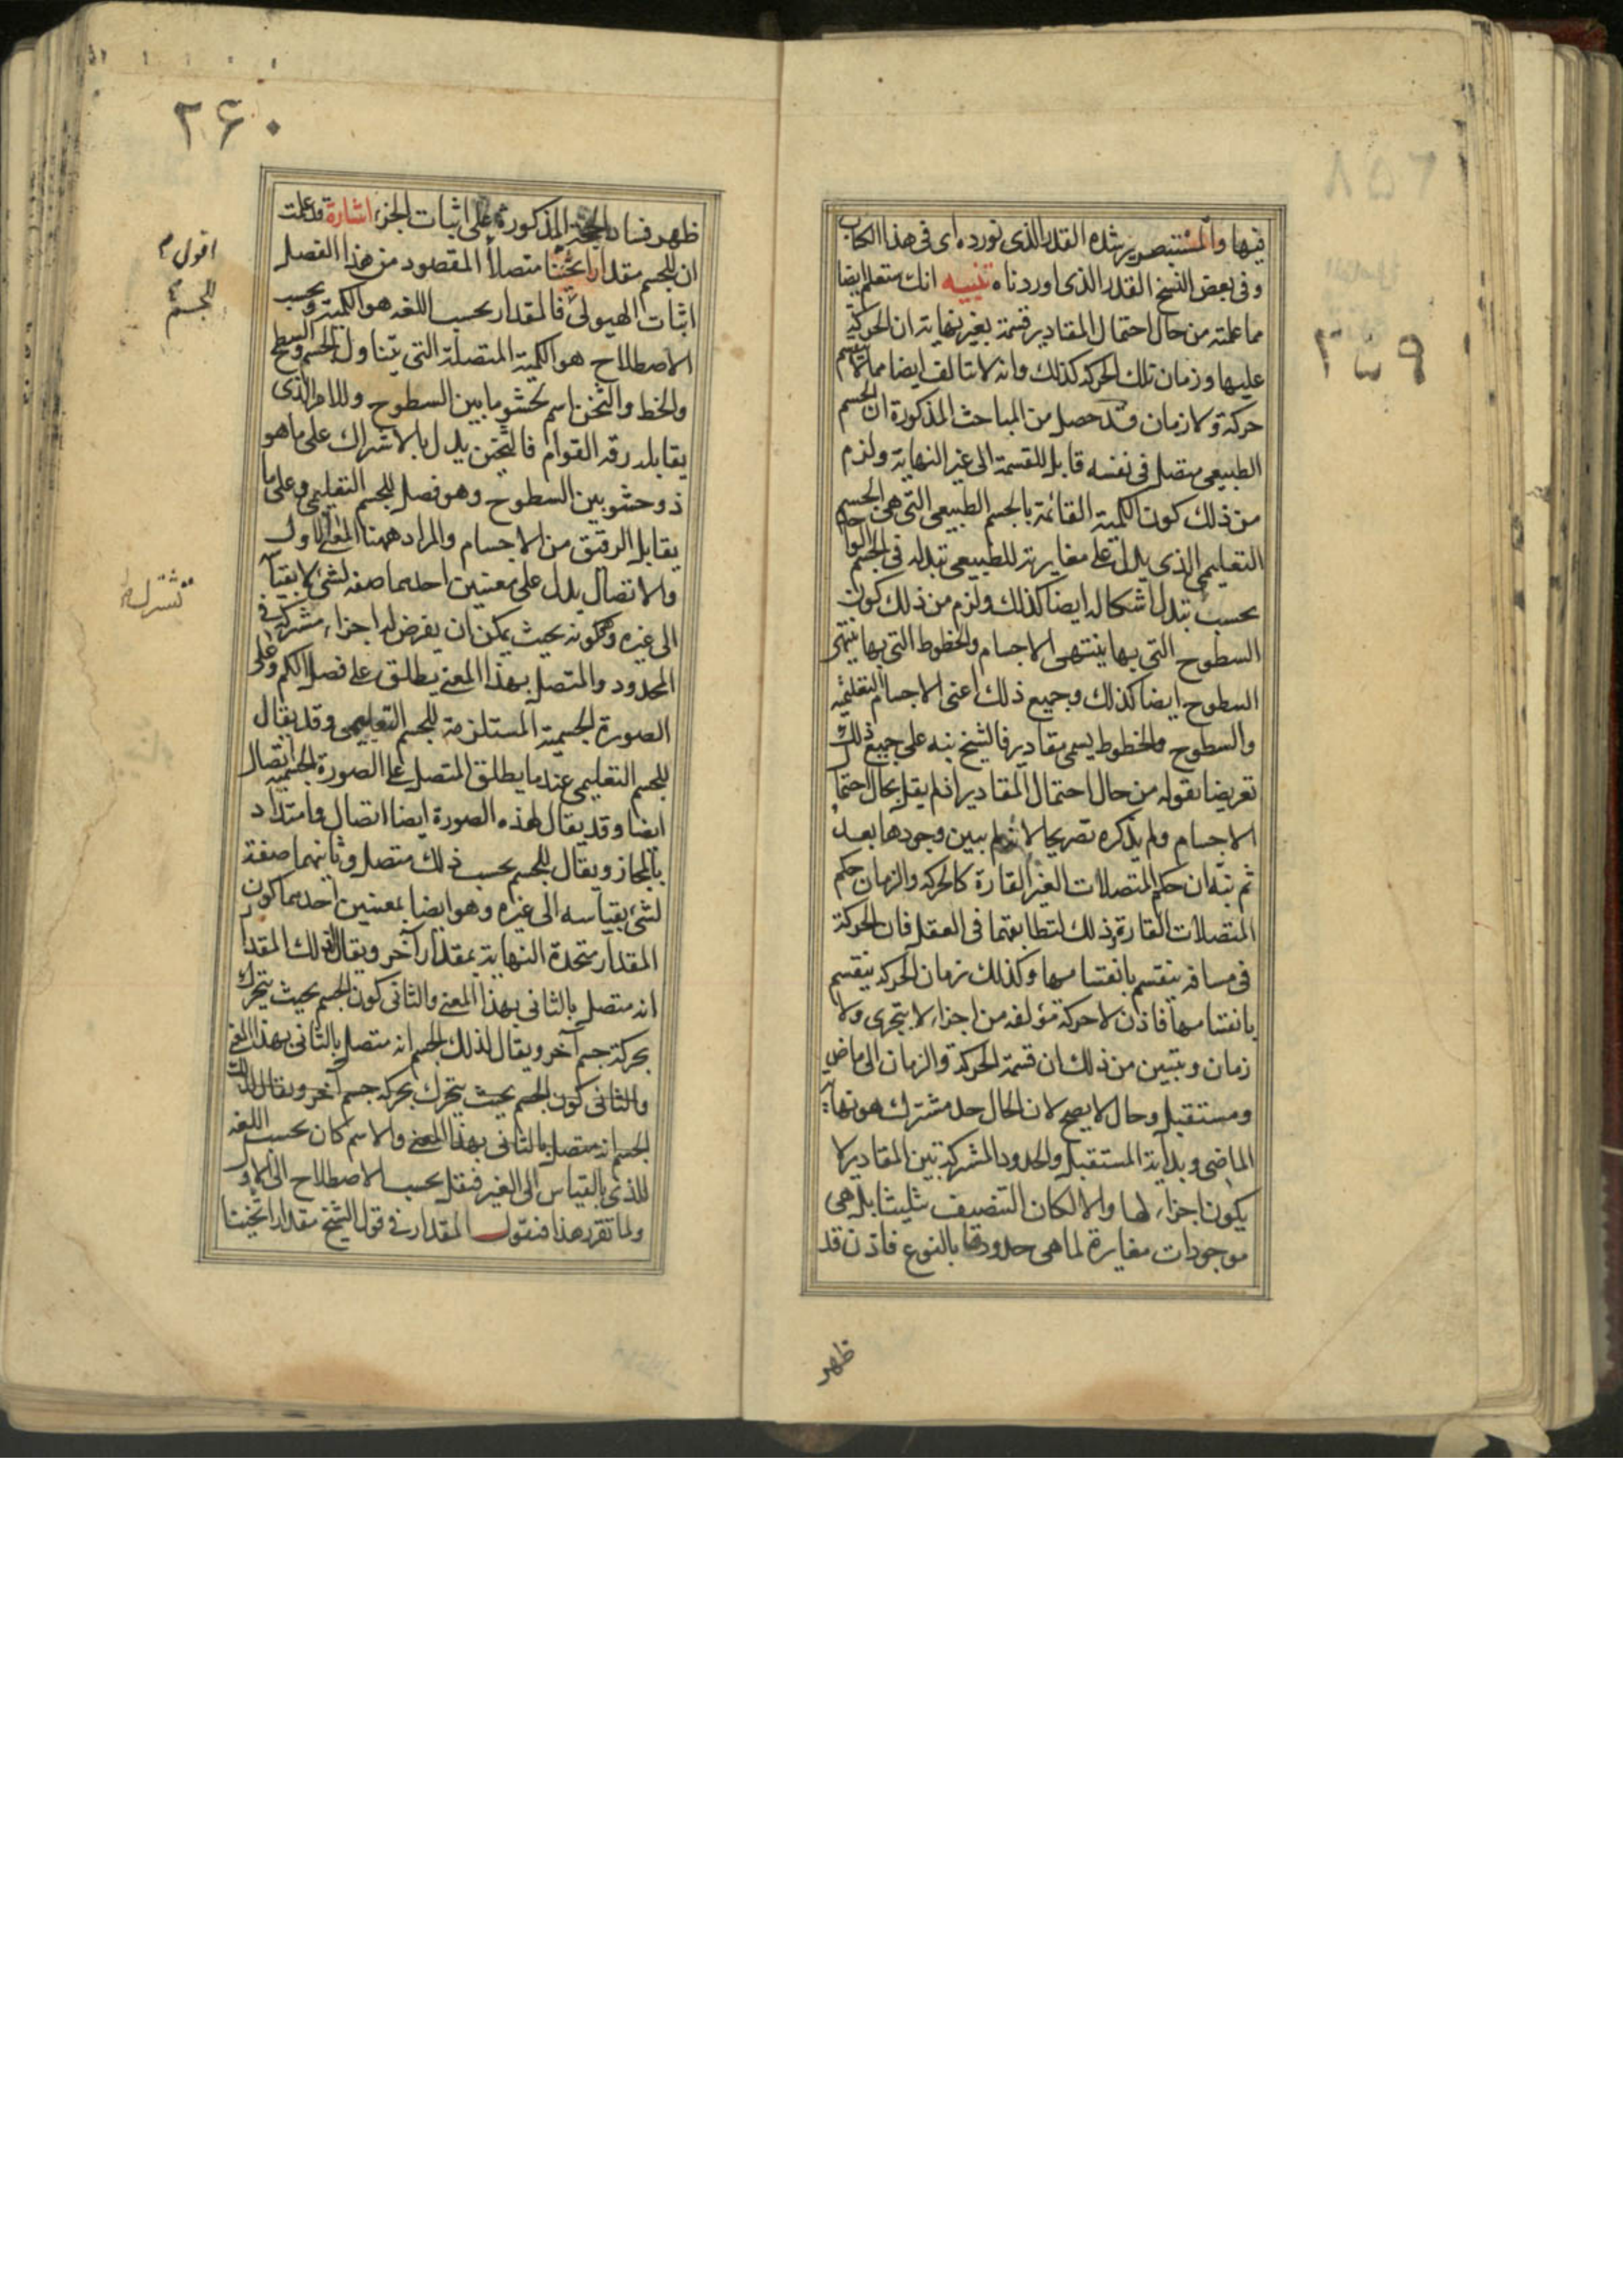 ٢٥٩
فيها والمستبصر يرشده القدر الذى نورده اى فى هذا الكتاب
وفى بعض النسخ القدر الذى اوردناه تنبيه انك ستعلم ايضا
مما علمته من حال احتمال المقادير قسمة بغير نهاية ان الحركة
عليها وزمان تلك الحركة كذلك وانه لا يتالف ايضا مما لا ينقسم
حركة ولا زمان وقد حصل من المباحث المذكورة ان الجسم
الطبيعى متصل فى نفسه قابل للقسمة الى غير النهاية ولزم
من ذلك كون الكمية القائمة بالجسم الطبيعى التى هى الجسم
التعليمى الذى يدل على مغايرته للطبيعى تبدله فى الجسم الواحد
بحسب تبدل اشكاله ايضا كذلك ولزم من ذلك كون
السطوح التى بها ينتهى الاجسام والخطوط التى بها ينتهى
السطوح ايضا كذلك وجميع ذلك اعنى الاجسام التعليمية
والسطوح والخطوط يسمى مقادير فالشيخ نبه على جميع ذلك
تعريضا بقوله من حال احتمال المقادير اذ لم يقل بحال احتمال
الاجسام ولم يذكره تصريحا لانه لم يبين وجودها بعد
ثم نبه ان حكم المتصلات الغير القارة كالحركة والزمان حكم
المتصلات القارة وذلك لتطابقهما فى العقل فان الحركة
فى مسافة ينقسم بانقسامها وكذلك زمان الحركة ينقسم
بانقسامها فاذن لا حركة مؤلفه من اجزاء لا يتجزى ولا
زمان ويتبين من ذلك ان قسمة الحركة والزمان الى ماض
ومستقبل وحال لا يصح لان الحال حد مشترك هو نهاية
الماضى وبداية المستقبل والحدود المشتركة بين المقادير لا
يكون اجزاء لها والا لكان التنصيف تثليثا بل هى
موجودات مغايرة لما هى حدودها بالنوع فاذن قد
ظهر
٢٦٠
ظهر فساد الحجة المذكورة على اثبات الجزء اشارة قد علمت
ان للجسم مقدارا ثخينا متصلا المقصود من هذا الفصل
اثبات الهيولى فالمقدار بحسب اللغة هو الكمية وبحسب
الاصطلاح هو الكمية المتصلة التى يتناول الجسم والسطح
والخط والثخن اسم لحشو ما بين السطوح وللامر الذى
يقابله رقه القوام فالثخين يدل بالاشتراك على ما هو
ذو حشو بين السطوح وهو فصل للجسم التعليمى وعلى ما
يقابل الرقيق من الاجسام والمراد ههنا المعنى الاول
والاتصال يدل على معنيين احدهما صفه لشئ لا بقياسه
الى غيره وهو كونه بحيث يمكن ان يفرض له اجزاء مشتركة فى
الحدود والمتصل بهذا المعنى يطلق على فصل الكم وعلى
الصورة الجسمية المستلزمة للجسم التعليمى وقد يقال
للجسم التعليمى عندما يطلق المتصل على الصورة الجسمية اتصال
ايضا وقد يقال لهذه الصورة ايضا اتصال وامتداد
بالمجاز ويقال للجسم بحسب ذلك متصل وثانيهما صفة
لشئ بقياسه الى غيره وهو ايضا بمعنيين احدهما كون
المقدار متحدة النهاية بمقدار آخر ويقال لذلك المقدار
انه متصل بالثانى بهذا المعنى والثانى كون الجسم بحيث يتحرك
بحركة جسم آخر ويقال لذلك الجسم انه متصل بالثانى بهذا المعنى
والثانى كون الجسم بحيث يتحرك بحركة جسم آخر ويقال لذلك
الجسم انه متصل بالثانى بهذا المعنى والاسم كان بحسب اللغه
للذى بالقياس الى الغير فنقل بحسب الاصطلاح الى الاول
ولما تقرر هذا فنقول المقدار فى قول الشيخ مقدارا ثخينا
اقول م
للجسم